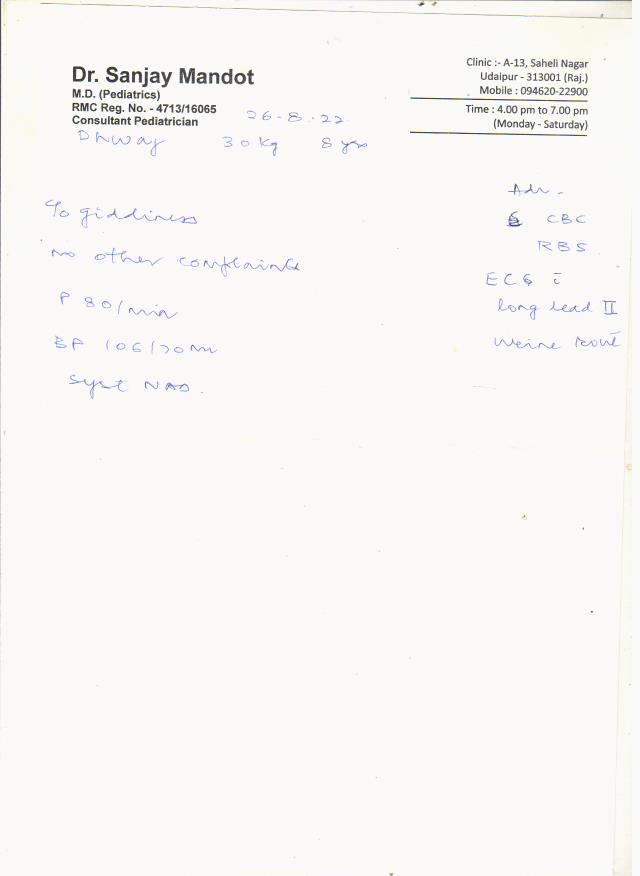 Dr. Sanjay Mandot
M.D. (Pediatrics)
RMC Reg. No. - 4713/16065
Consultant Pediatrician
Clinic :- A-13, Saheli Nagar
Udaipur - 313001 (Raj.)
Mobile : 094620-22900
Time : 4.00 pm to 7.00 pm
(Monday - Saturday)
26-8-22
30 Kg 8 yrs
c/o giddiness
no other complaints
P 80/min
BP 106/70
Syst NAD
Adv -
CBC
RBS
ECG c̄
long lead II